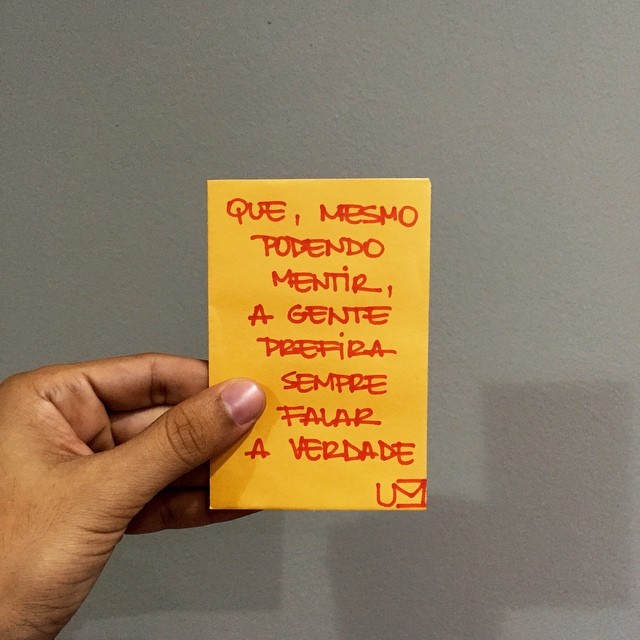 QUE, MESMO
PODENDO
MENTIR,
A GENTE
PREFIRA
SEMPRE
FALAR
A VERDADE
UM